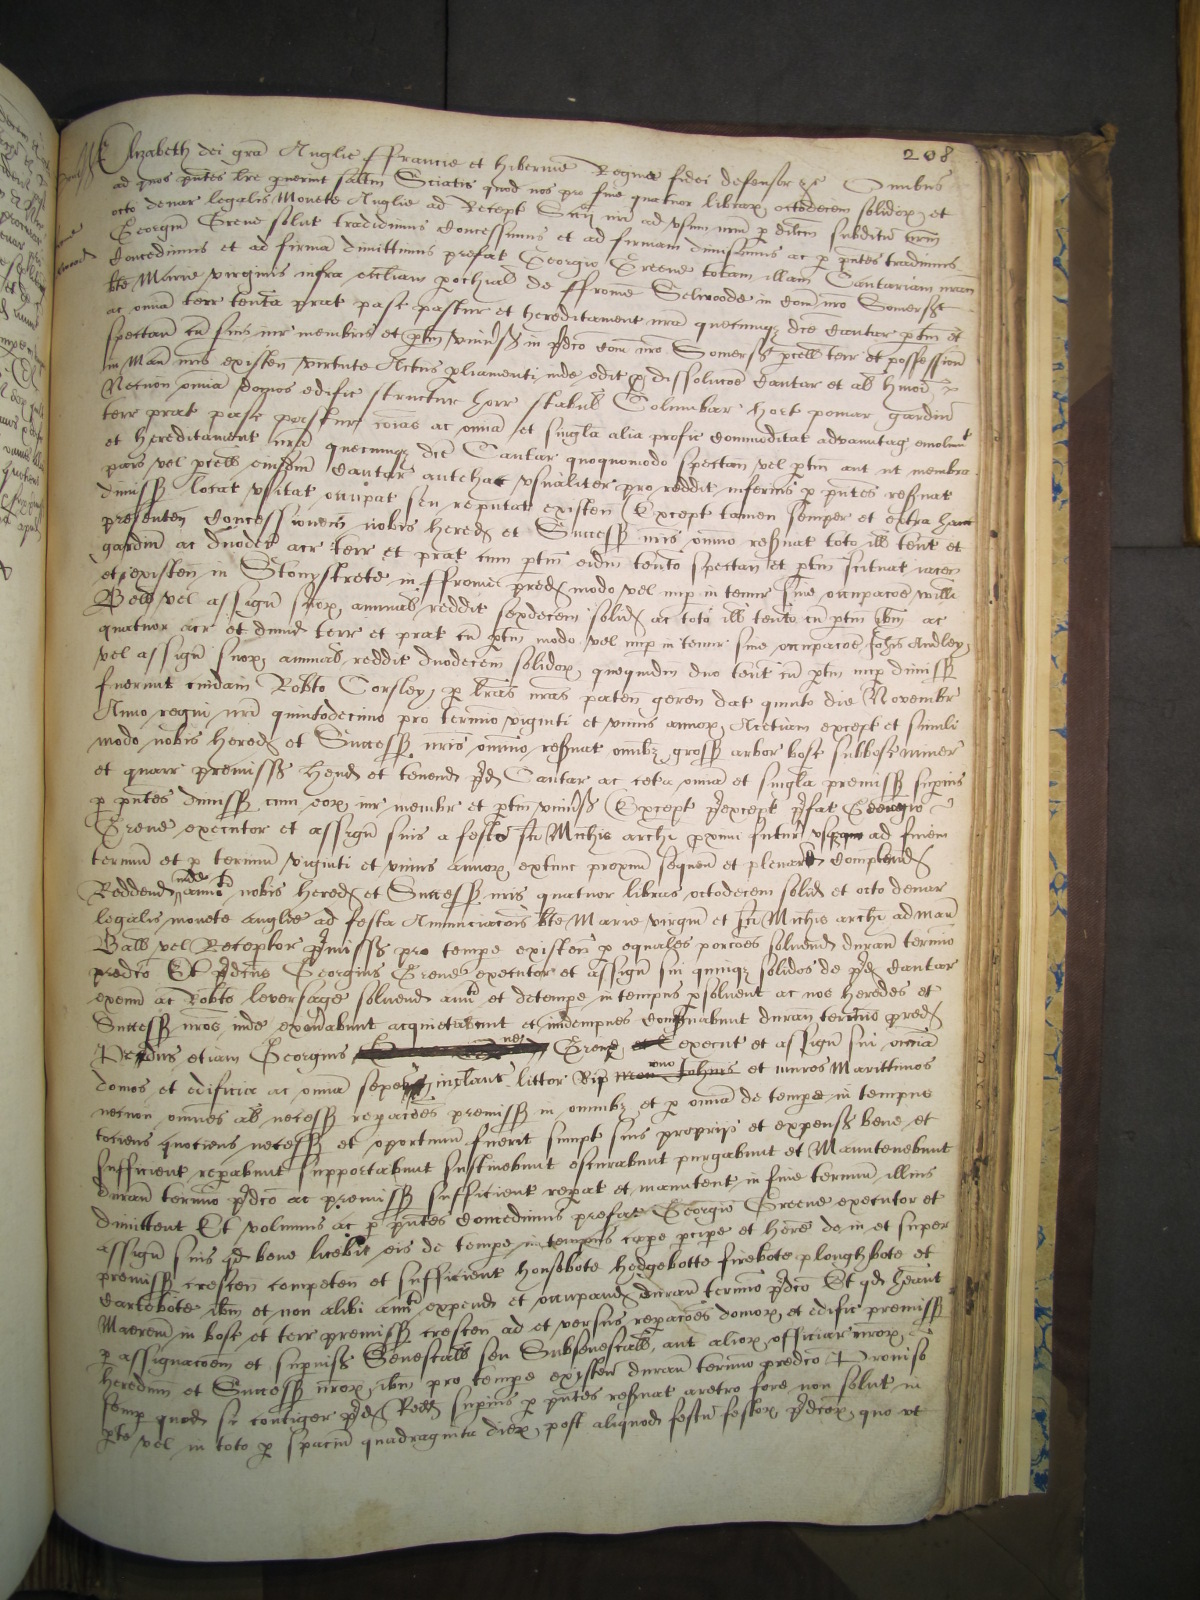 208
Elizabeth dei gra Anglie ffrancie et hibernie Regina fidei defensor &c Omibus
ad quos pntes lre pvenint saltm Sciatis quod nos pro fine quatuor librar octodecem solidor et
octo denar legalis Monete Anglie ad Recept Sccij nri ad vsum nrm p dilcm subditu nrm
Georgiu Grene solut tradidimus Concessimus et ad firmam dimisimus ac p pntes tradimus
Concedimus et ad firma dimittimus prefat Georgio Greene totam illam Cantariam nram
bte Marie virginis infra eccliam pochial de ffrome Selwoode in Com nro Somerst
ac omia terr tenta prat pasc pastur et hereditament nra quecunqz dce Cantar ptin et
spectan cu suis iur membris et ptin vniusis in pdco Com nro Somerst pcell terr et possession
in Man nris existen virtute Actus pliamenti inde edit p dissolucoe Cantar et al hmoi
Necnon omia domos edific structur horr stabul Columbar hort pomar gardin
terr prat pasc pastur coias ac omia et singla alia profic Commoditat advantag emolumt
et hereditament nra quecunqz dce Cantar quoquomodo spectan vel ptin aut ut membra
pars vel pcell eiusdm Cantar antehac vsualiter pro reddit inferius p pntes reservat
dimiss locat vsitat occupat seu reputat existen Except tamen semper et extra hanc
presentem Concessionem nobis hered et Success nris omio reservat toto ill tent et
gardin ac duodec acr terr et prat cum ptin eidm tento spectan et ptin scituat iacen
et existen in Stonystrete in ffrome pred modo vel nup in tenur sive occupacoe willi
Bell vel assign suor annual reddit sexdecem solid ac toto ill tento cu ptin ibm ac
quatuor acr et dimid terr et prat cu ptin modo vel nup in tenur sive occupacoe Johis Audley
vel assign suor annual reddit duodecem solidor quequidm duo tent cu ptin nup dimiss
fuerunt cuidam Robto Corsley p lras nras paten geren dat quinto die Novembr
Anno regni nri quintodecimo pro termio viginti et vnius annor Acetiam except et simili
modo nobis hered et Success nris omnino reservat omibz gross arbor bosc subbosc miner
et quarr premiss hend et tenend pd Cantar ac cetra omia et singla premiss supius
p pntes dimiss cum eor iur membr et ptin vniusis Except pexcept pfat Georgio
Grene executor et assign suis a festo sci Michis archi pximi futur vsque ad finem
termini et p terminu viginti et vnius annor extunc proximu sequen et plenar complend
Reddend inde annti nobis hered et Success nris quatuor libras octodecem solid et octo denar
legalis monete anglie ad festa Annunciacois bte Marie virginu et sci Michis archi ad man
Ball vel Receptor pmiss pro tempe existen p equales porcoes solvend duran termio
predco Et pdcus Georgius Grene executor et assign sui quinqz solidos de pd Cantar
exeun ac Robto leversage solvend annti et detempe in tempus psolvent ac nos heredes et
Success nros inde exonabunt acquietabunt et indempnes consvabunt duran termio pred
Predcus etiam Georgius Grene execut et assign sui omia
domos et edificia ac omia sepes inclaus littor Rip et muros Marittimos
necnon omnes al necess repacoes premiss in omnibz et p omia de tempe in tempus
tociens quociens necess et oportunu fuerit sumpt suis proprijs et expens bene et
sufficient repabunt supportabunt sustinebunt escurabunt purgabunt et Manutenebunt
duran termio pdco ac premiss sufficient repat et manutent in fine termini illius
dimittent Et volumus ac p pntes concedimus prefat Georgio Greene executor et
assign suis qd bene licebit eis de tempe in tempus cape pcipe et here de in et super
premiss crescen competen et sufficient housebote hedgebotte firebote ploughbote et
Cartebote ibm et non alibi annti expend et occupand duran termio pdco Et qd heant
Maerem in bosc et terr premiss crescen ad et versus repacoes domor et edific premiss
p assignacoem et supuis Senescall seu Subsenescall aut alior officiar nror
heredum et Success nror ibm pro tempe existen duran termio predco Proviso
semp quod si contiger pd Redd supius p pntes reservat aretro fore non solut in
pte vel in toto p spaciu quadraginta dier post aliquod festu festor pdcor quo vt